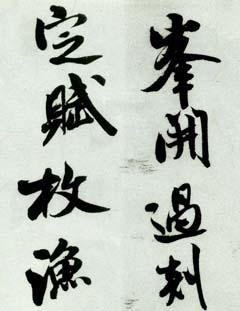 峯開過刻
定賦牧漁